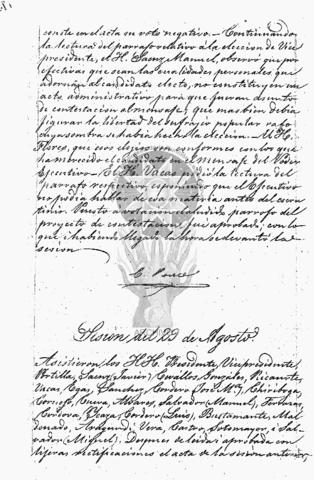 conste en el acta su voto negativo. – Continuando
la lectura del párrafo relativo á la eleccion de Vice
presidente, el H. Saenz Manuel, observó que por
efectivas que sean las cualidades personales que
adornan al candidato electo, no constituyen un
acto administrativo para que fueran asunto
de contestacion al mensaje; que mas bien debia
figurar la libertad del sufrajio popular bajo
cuya sombra se habia hecho la eleccion. – El H.
Flores, que esos elojios son conformes con los que
ha merecido el candidato en el mensaje del Poder
Ejecutivo – El H. Vacas pidió la lectura del
párrafo respectivo, esponiendo que el Ejecutivo
no podia hablar de esa materia antes del escru
tinio. Puesto á votacion el aludido párrafo del
proyecto de contestacion, fué aprobado; con lo
que i habiendo llegado la hora se levantó la
sesion
C. Ponce
Sesion del 29 de Agosto.
Asistieron los H.H. Presidente, Vicepresidente,
Portilla, Saenz (Javier), Cevallos, Gonzáles, Ricaurte,
Vacas, Egas, Sanchez, Cordero José M.ª, Chiriboga,
Cornejo, Cueva, Mera, Salvador (Manuel),
Cordova, Plaza, Cordero (Luis), Bustamante, Mal
donado, Arzaguí, Vera, Castro, Sotomayor, i Sal
vador (Miguel). Despues de leida i aprobada con
lijeras rectificaciones el acta de la sesion anterior,